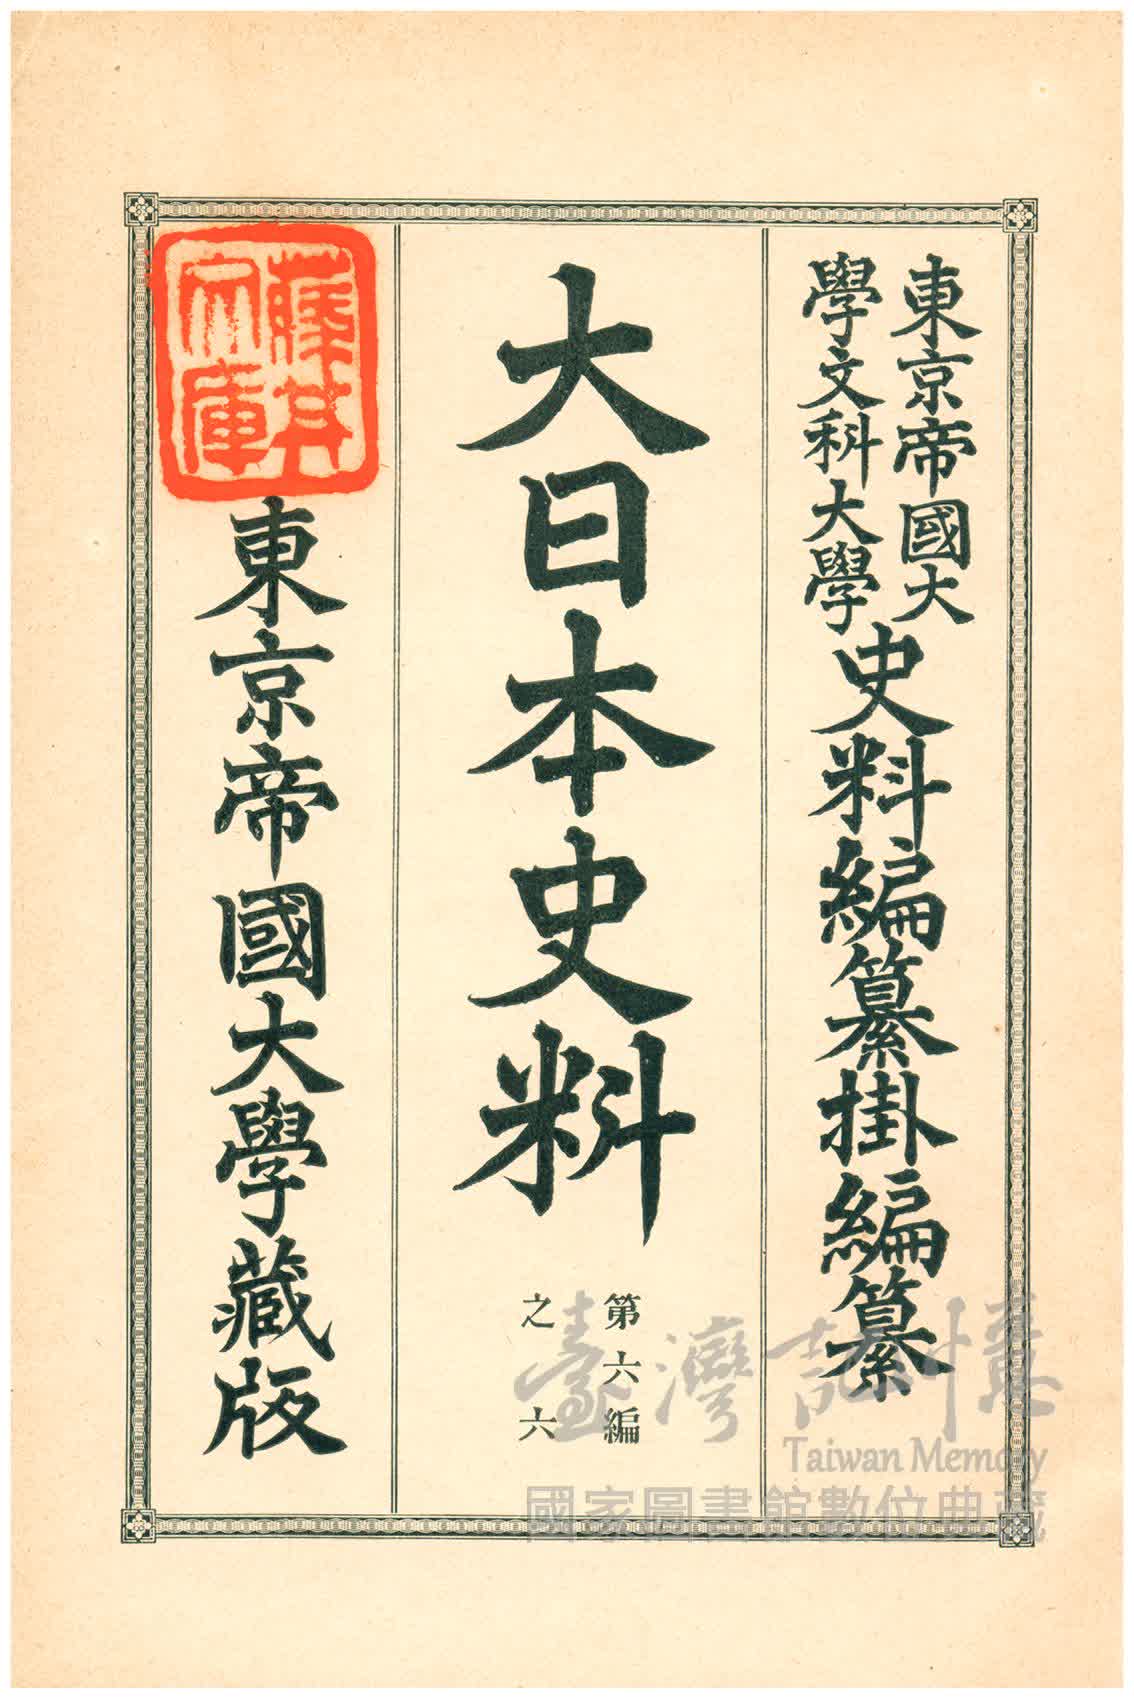 東京帝國大
學文科大學
史料編纂掛編纂
大日本史料
第六編
之六
東京帝國大學藏版
臺灣記憶
Taiwan Memory
國家圖書館數位典藏